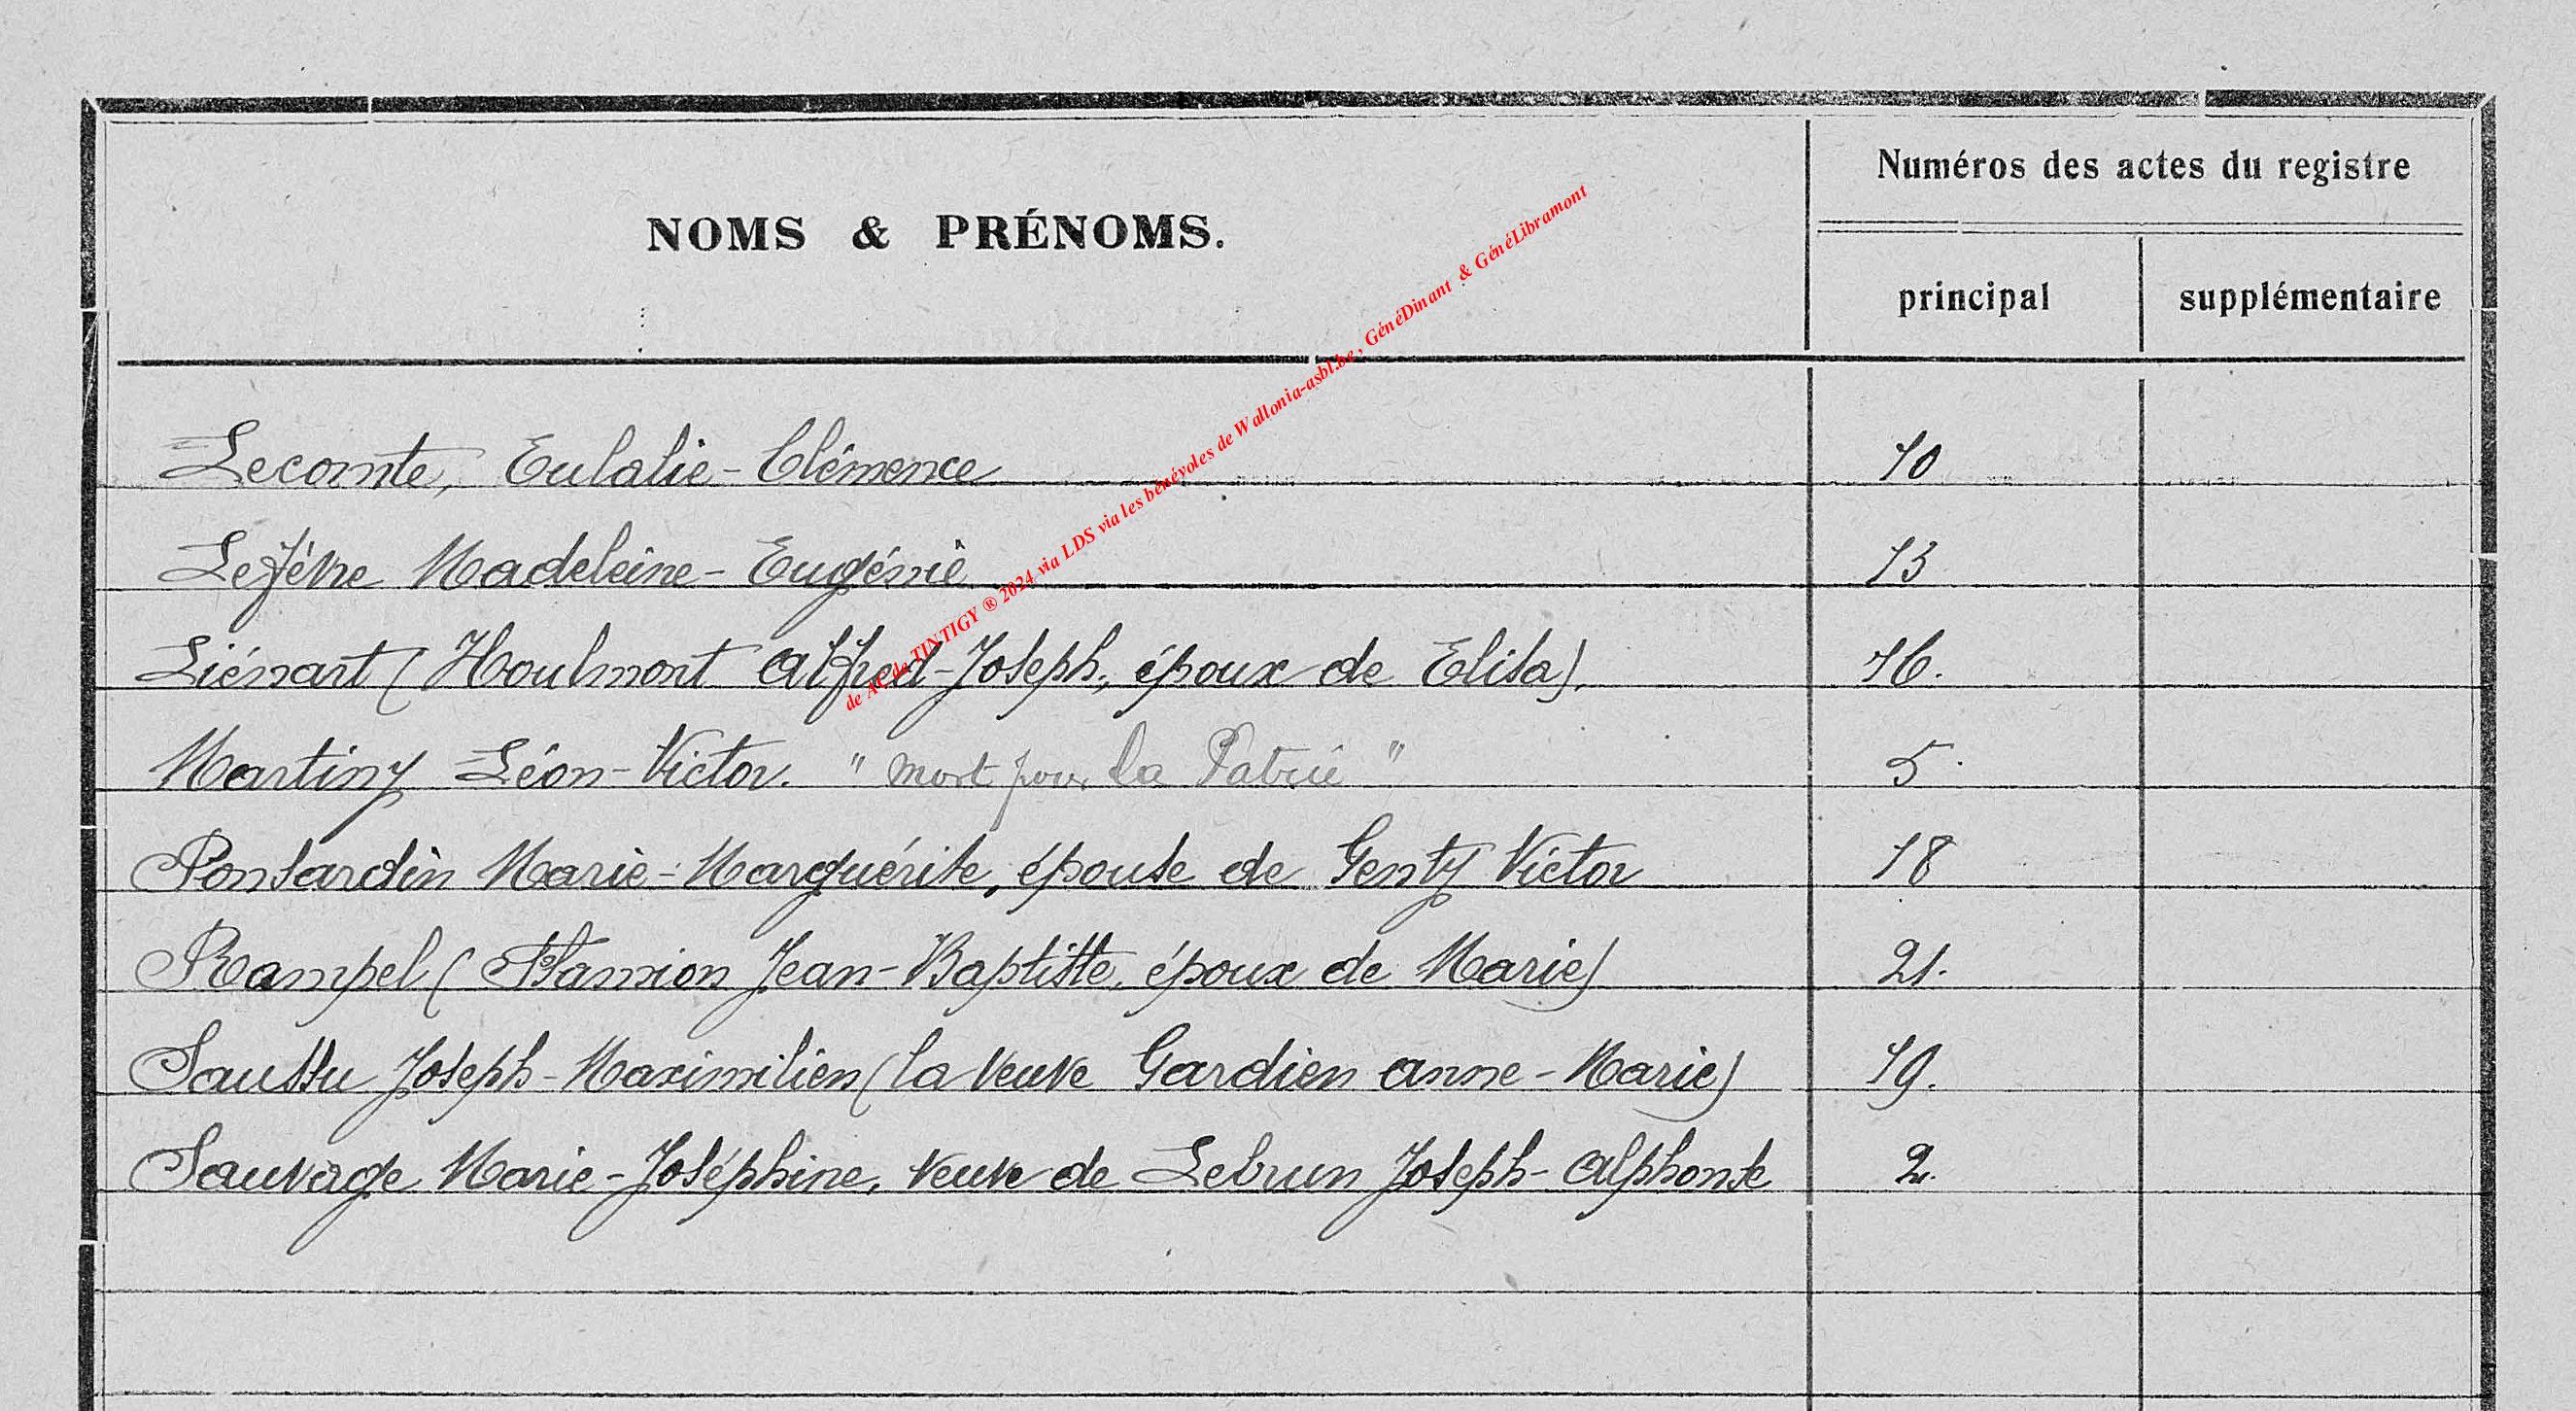 Numéros des actes du registre
NOMS & PRÉNOMS.
principal supplémentaire
de AC de TINTIGY ® 2024 via LDS via les bénévoles de Wallonia-asbl.be, GénéDinant & GénéLibramont
Lecomte, Eulalie-Clémence 10
Lefèvre Madeleine-Eugénie 13
Liénart (Houlmont Alfred-Joseph, époux de Elisa). 16.
Martiny Léon-Victor. "Mort pour la Patrie" 5.
Ponsardin Marie-Marguérite, épouse de Genty Victor 18
Rampel (Flamion Jean-Baptiste, époux de Marie) 21.
Saussu Joseph-Maximilien (la veuve Gardien Anne-Marie) 19.
Sauvage Marie-Joséphine, veuve de Lebrun Joseph-Alphonse 2.